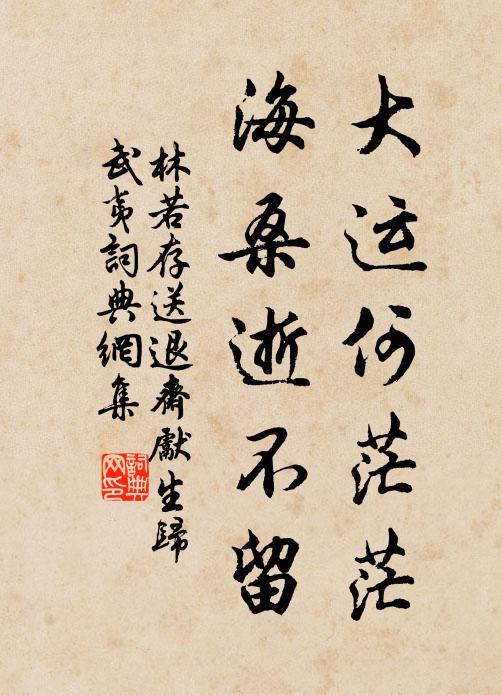 大运何茫茫
海桑逝不留
林若存送退斋献生歸
武夷詞典網集
詞典网印